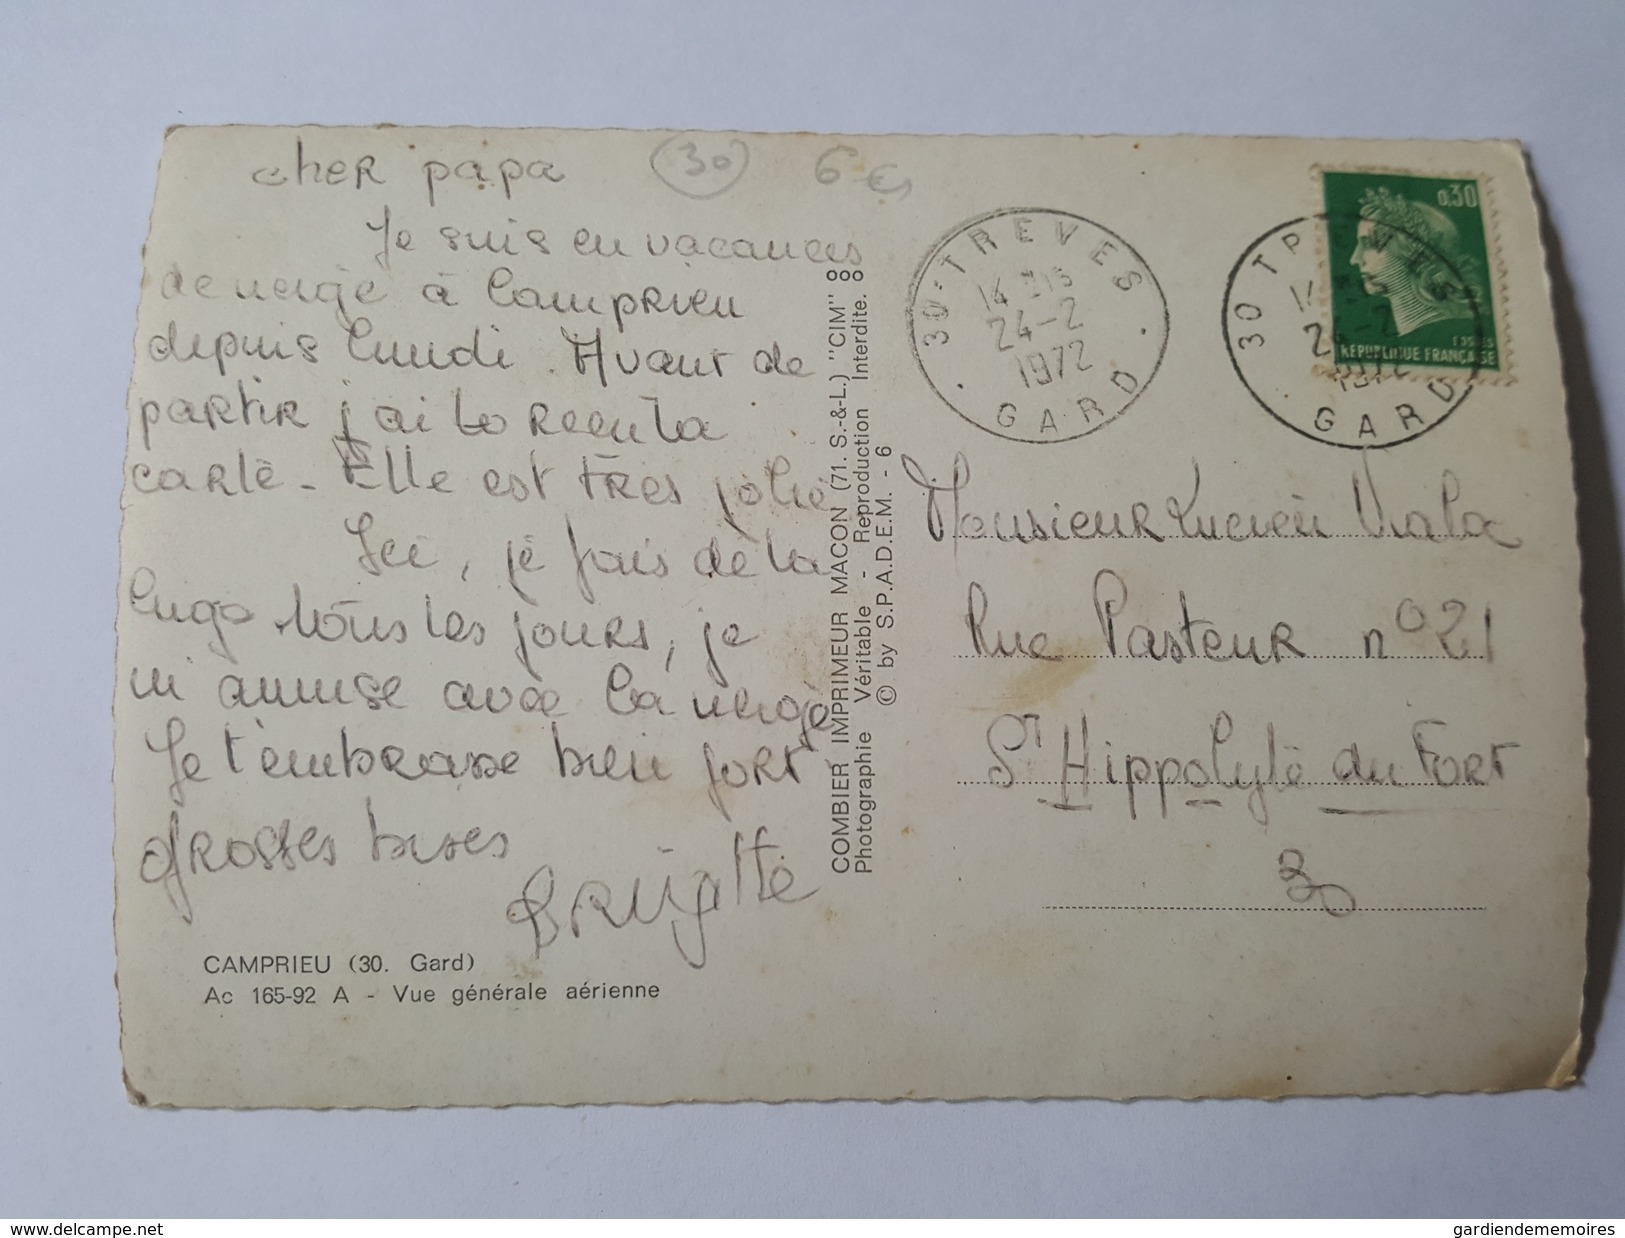 cher papa
30
6 €
Je suis en vacances
de neige à Camprieu
depuis lundi. Avant de
partir j'ai bo recu ta
carte - Elle est très jolie
Ici, je fais de la
luge tous les jours, je
m'amuse avec la neige
Je t'embrasse bien fort
grosses bises
Brigitte
CAMPRIEU (30. Gard)
Ac 165-92 A - Vue générale aérienne
COMBIER IMPRIMEUR MACON (71. S.-&-L.) "CIM"
Photographie Véritable - Reproduction Interdite.
© by S.P.A.D.E.M. - 6
30 - TREVES
14 H 15
24-2
1972
GARD
30 TREVES
24-2
1972
GARD
0,30
REPUBLIQUE FRANÇAISE
Monsieur Lucien Viala
Rue Pasteur n° 21
St Hippolyte du Fort
30
delcampe.net
gardiendememoires